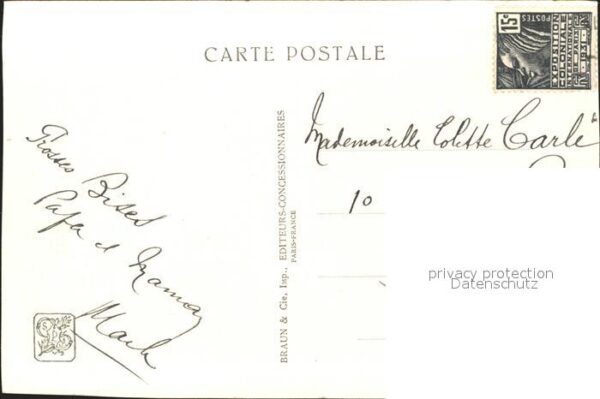 CARTE POSTALE
15c
POSTES
EXPOSITION
COLONIALE
INTERNATIONALE
DE PARIS
1931
Mademoiselle Colette Carle
10
Grosses Bises
Papa et Maman
BRAUN & Cie, Imp., EDITEURS-CONCESSIONNAIRES
PARIS-FRANCE
privacy protection
Datenschutz